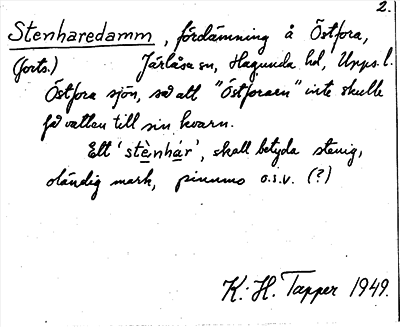 2.
Stenharedamm, fördämning å Östfora,
(forts.) Järlåsa sn, Hagunda hd, Upps. l.
Östfora sjön, så att "Östforaern" inte skulle
få vatten till sin kvarn.
Ett 'stènhár', skall betyda stenig,
oländig mark, pinnmo o.s.v. (?)
K. H. Tapper 1949.